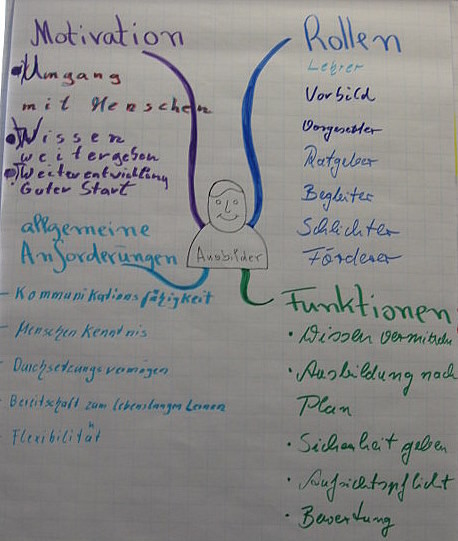 Motivation
Umgang
mit Menschen
Wissen
weitergeben
Weiterentwicklung
Guter Start
Rollen
Lehrer
Vorbild
Vorgesetzter
Ratgeber
Begleiter
Schlichter
Förderer
Ausbilder
allgemeine
Anforderungen
- Kommunikationsfähigkeit
- Menschenkenntnis
- Durchsetzungsvermögen
- Bereitschaft zum lebenslangen Lernen
- Flexibilität
Funktionen
• Wissen vermitteln
• Ausbildung nach
Plan
• Sicherheit geben
• Aufsichtspflicht
• Bewertung